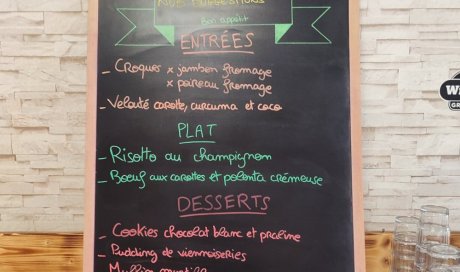 NOS SUGGESTIONS
Bon appétit
ENTRÉES
_ Croques x jambon fromage
x poireau fromage
_ Velouté carotte, curcuma et coco
PLAT
_ Risotto au champignon
_ Boeuf aux carottes et polenta crémeuse
DESSERTS
_ Cookies chocolat blanc et praline
_ Pudding de viennoiseries
_ Muffin